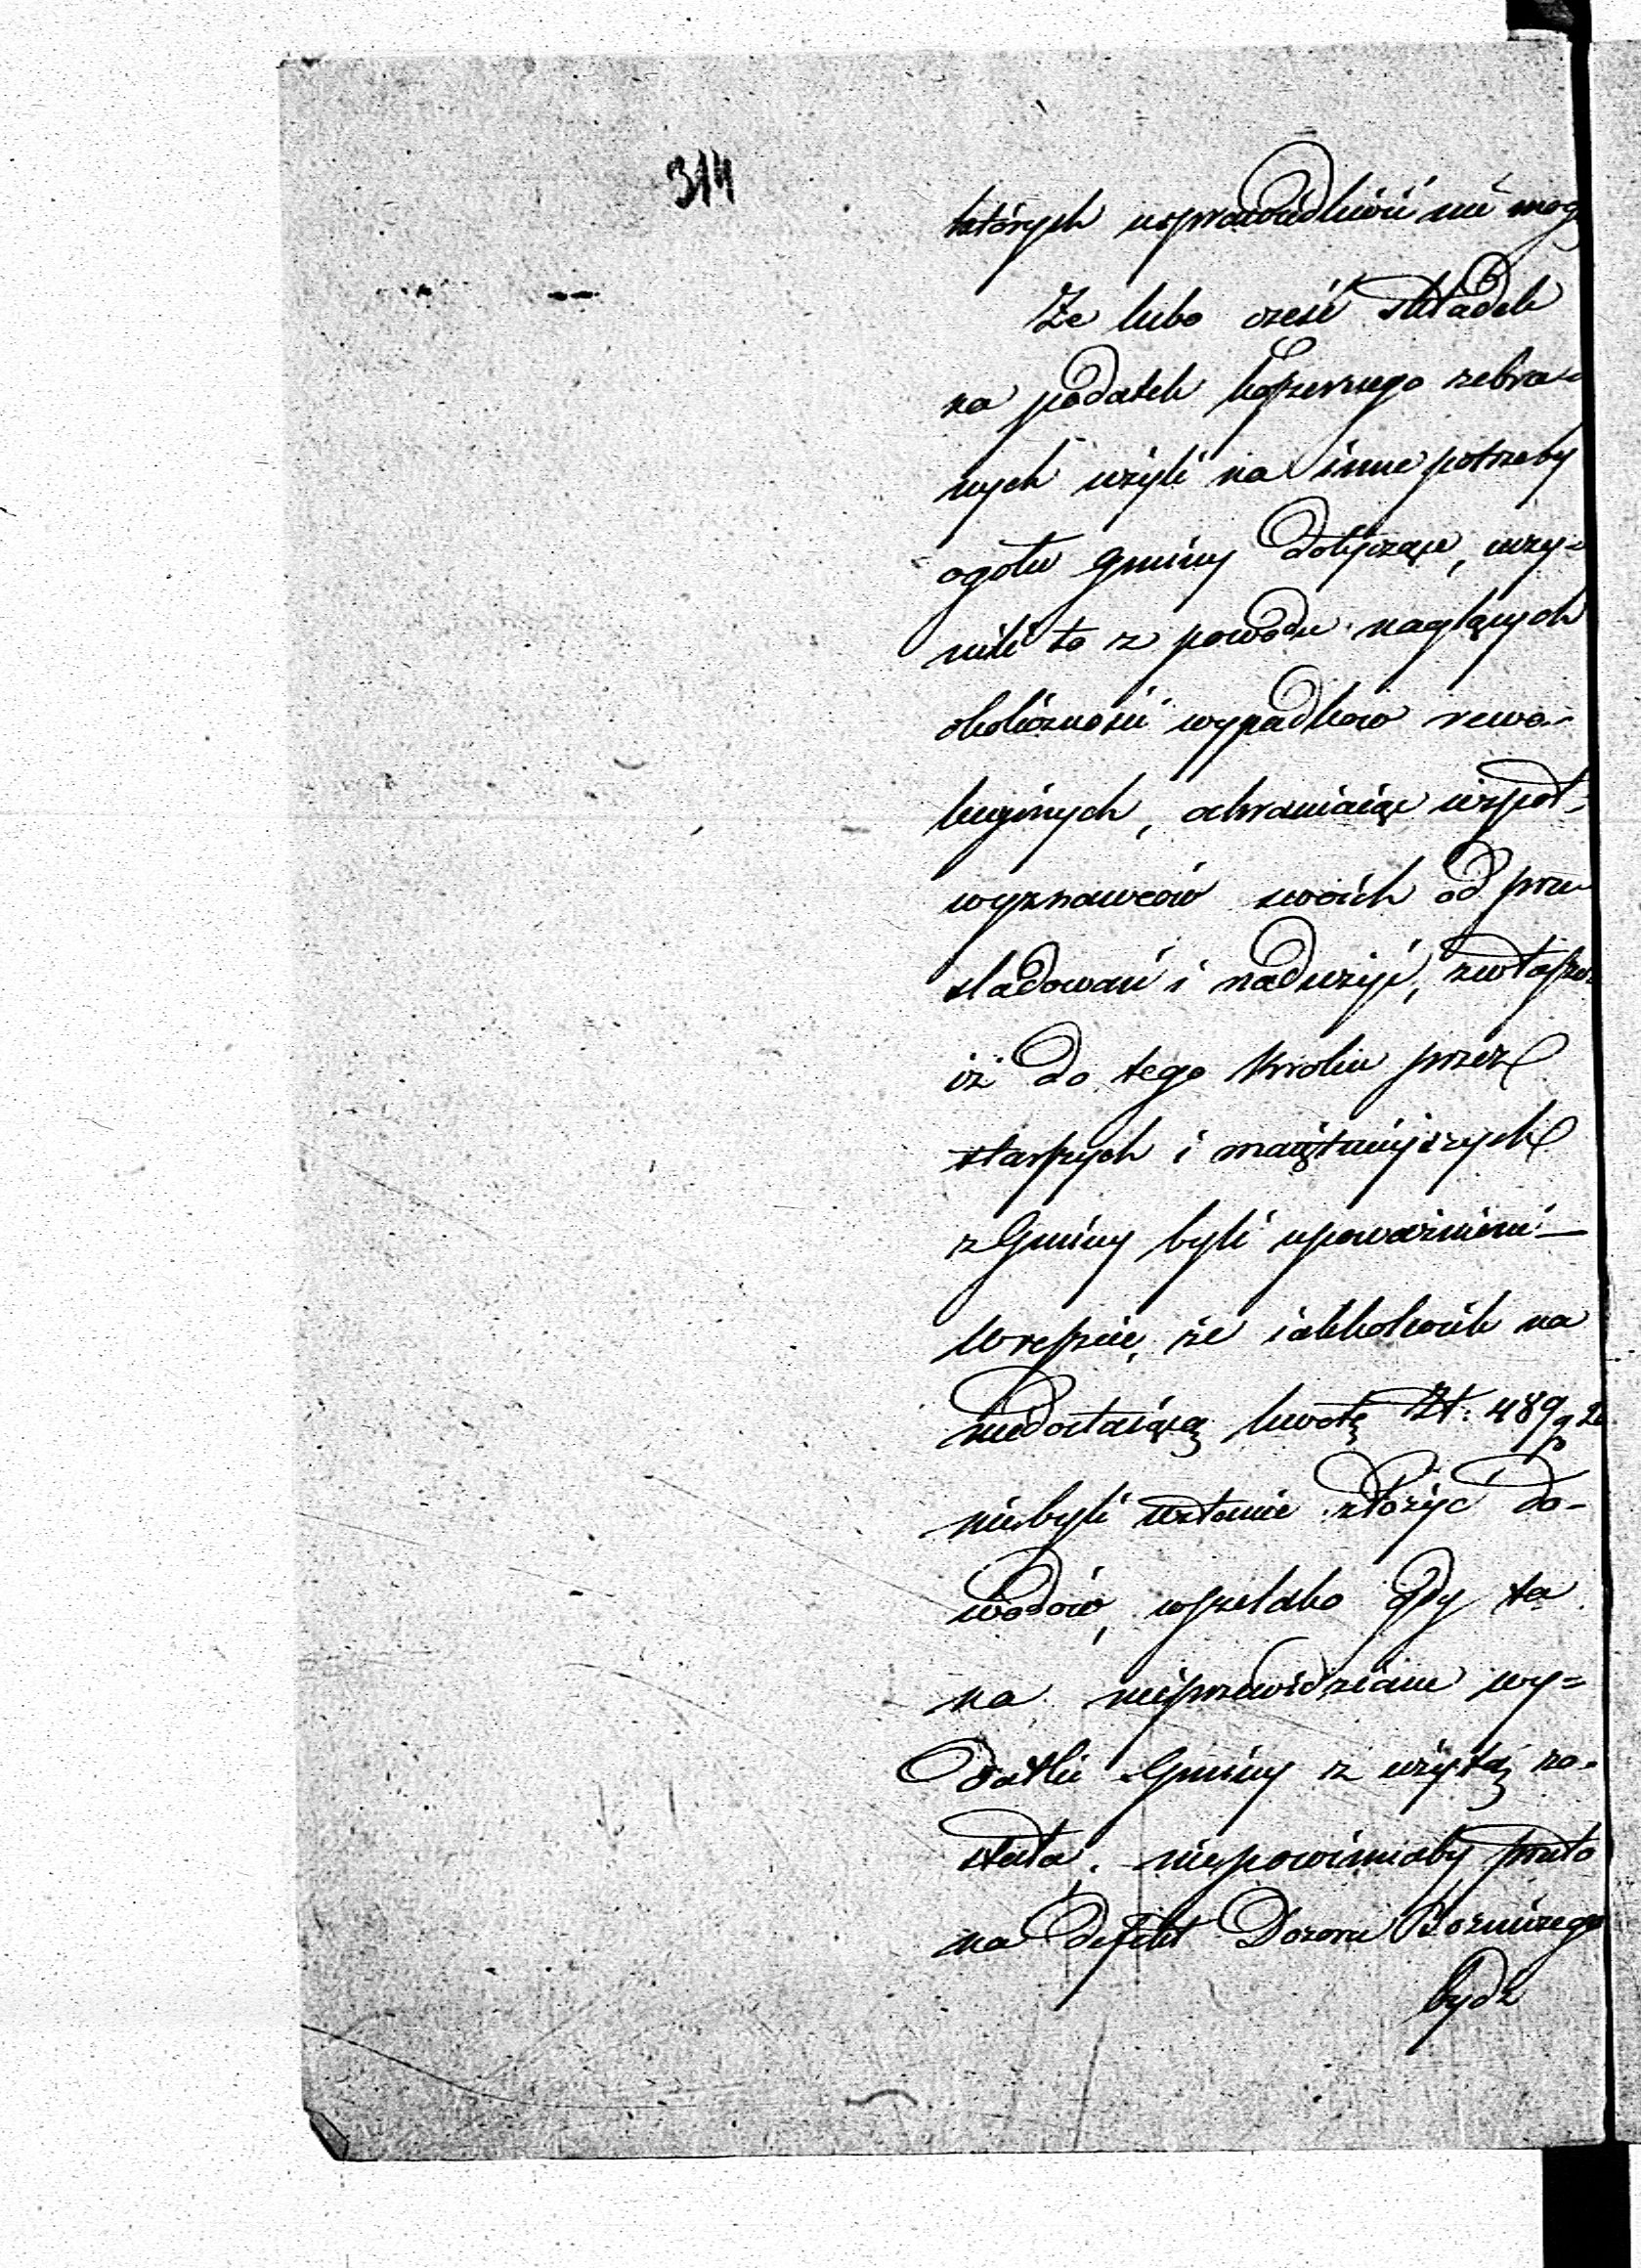 314
których usprawiedliwić nie mog
Że lubo cześć składek
na podatek koszernego zebra-
nych użyli na inne potrzeby
ogołu Gminy dotyczące, uczy=
nili to z powodu naglących
okoliczności wypadkow rewo-
lucyinych, ochraniaiąc wspoł-
wyznawców swoich od prze-
sladowań i nadużyć, zwłaszcz
iż do tego kroku przez
starszych i maiętnieyszych
z Gminy byli upoważnieni —
Wreszcie, że iakkolwiek na
niedostaiącą kwotę Zł: 489 g 2
niebyli wstanie złożyc do-
wodów, wszeldko gdy ta
na nieprzewidziane wy=
datki Gminy z użytą zo-
stała, niepowinnaby przeto
na defekt Dozoru Bożniczego
bydz